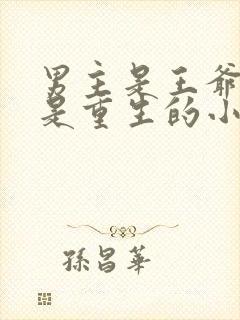 男主是王爷
是重生的小
孫昌華